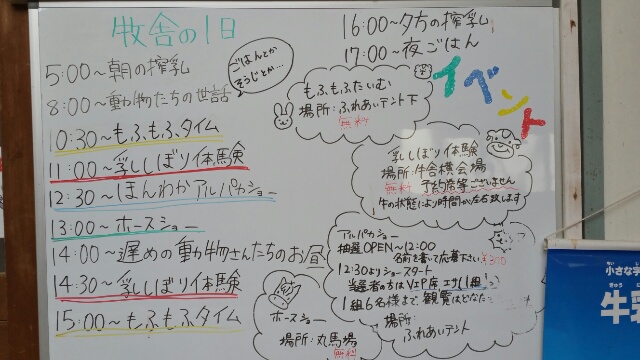 牧舎の1日
5:00~朝の搾乳
8:00~動物たちの世話
ごはんとか
そうじとか…
10:30~もふもふタイム
11:00~乳しぼり体験
12:30~ほんわかアルパカショー
13:00~ホースショー
14:00~遅めの動物さんたちのお昼
14:30~乳しぼり体験
15:00~もふもふタイム
16:00~夕方の搾乳
17:00~夜ごはん
イベント
もふもふたいむ
場所:ふれあいテント下
無料
乳しぼり体験
場所:牛舎横会場
無料 予約席等ございません
牛の状態により時間が左右致します
アルパカショー
抽選OPEN~12:00
名前を書いて応募下さい ¥300
12:30よりショースタート
当選者の方はVIP席 エサ(1組1つ)
1組6名様まで、観覧はどなた
場所:
ふれあいテント
ホースショー
場所:丸馬場
無料
小さな字
牛乳